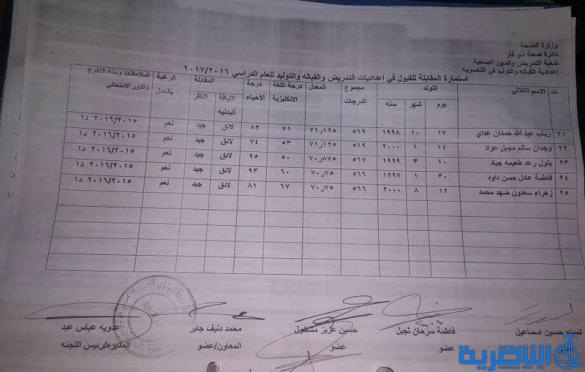 وزارة الصحة
دائرة صحة ذي قار
شعبة التمريض والمهن الصحية
إعدادية القبالة والتوليد في الناصرية
استمارة المقابلة للقبول في اعداديات التمريض والقبالة والتوليد للعام الدراسي ٢٠١٧/٢٠١٦
ت الاسم الثلاثي التولد مجموع الدرجات المعدل درجة اللغة الانكليزية درجة الاحياء المقابلة الرغبة بالعمل الملاحظات وسنة التخرج والدور الامتحاني
يوم شهر سنه اللياقة البدنية النظر
٢١ رباب عبد الله حمدان عداي ٢٧ ١٠ ١٩٩٨ ٥٦٩ ٧١٫١٢٥ ٧١ ٨٢ لائق جيد نعم ٢٠١٦/٢٠١٥ د١
٢٢ وجدان سالم مجبل عواد ١٤ ١ ٢٠٠٠ ٥٦٩ ٧١٫١٢٥ ٥٣ ٧٤ لائق جيد نعم ٢٠١٦/٢٠١٥ د١
٢٣ بتول رعد طعيمه جياد ١٠ ٣ ١٩٩٩ ٥٦٧ ٧٠٫٨٧٥ ٥٠ ٩٥ لائق جيد نعم ٢٠١٦/٢٠١٥ د١
٢٤ فاطمة عادل حسن داود ٣٠ ١ ١٩٩٧ ٥٦٦ ٧٠٫٧٥ ٦٠ ٩٣ لائق جيد نعم ٢٠١٦/٢٠١٥ د١
٢٥ زهراء سعدون ضهد محمد ١٢ ٨ ٢٠٠٠ ٥٦٦ ٧٠٫٧٥ ٦٧ ٨١ لائق جيد نعم ٢٠١٦/٢٠١٥ د١
حسين اسماعيل فاطمة سرحان ثجيل حسين عزيز مشغول محمد ضيف جابر عدويه عباس عبد
عضو عضو المعاون/عضو المديرة/رئيس اللجنه
الناصرية